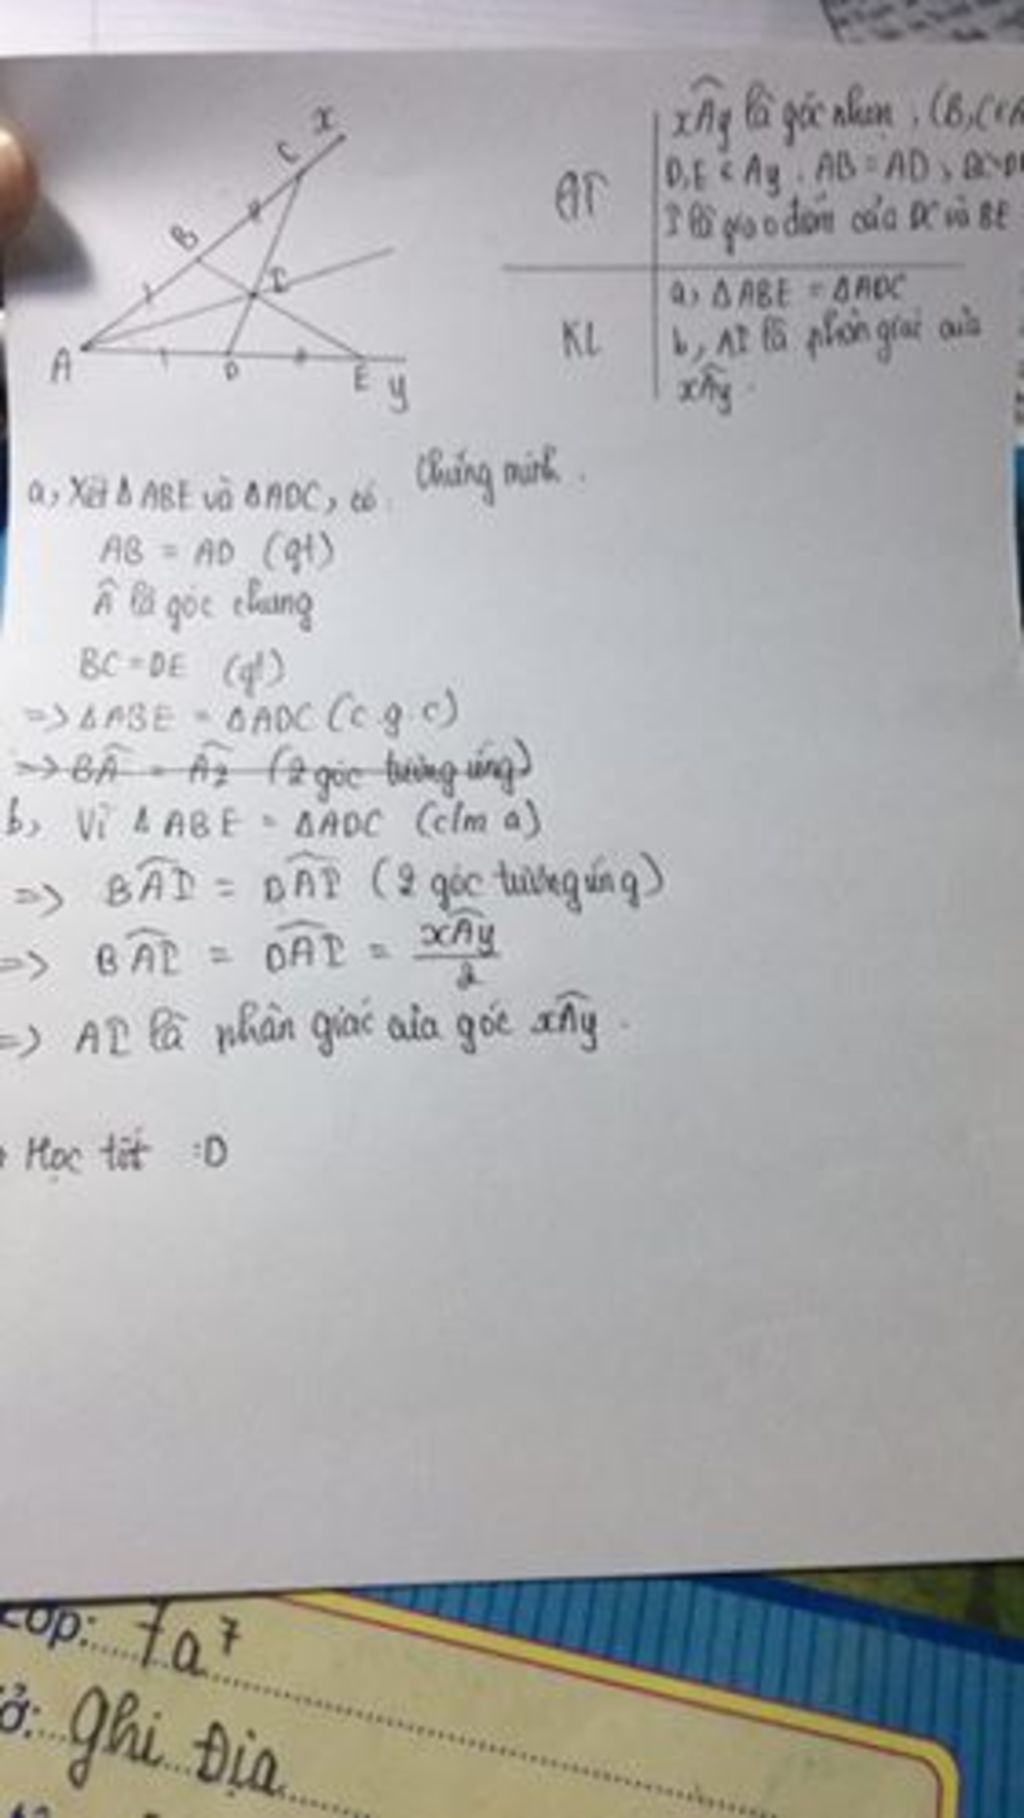 x
C
B
I
A
D
E
y
GT
xÂy là góc nhọn, (B, C ∈ A
D, E ∈ Ay, AB = AD, BC = D
I là giao điểm của DC và BE
KL
a, ΔABE = ΔADC
b, AI là phân giác của
xÂy.
Chứng minh.
a, Xét ΔABE và ΔADC, có
AB = AD (gt)
Â là góc chung
BC = DE (gt)
=> ΔABE = ΔADC (c.g.c)
=> BÂ = Â2 (2 góc tương ứng)
b, Vì ΔABE = ΔADC (c/m a)
=> BÂI = DÂI (2 góc tương ứng)
=> BÂI = DÂI = xÂy/2
=> AI là phân giác của góc xÂy.
Học tốt :D
Lớp: 7a⁷
ở: Ghi Địa